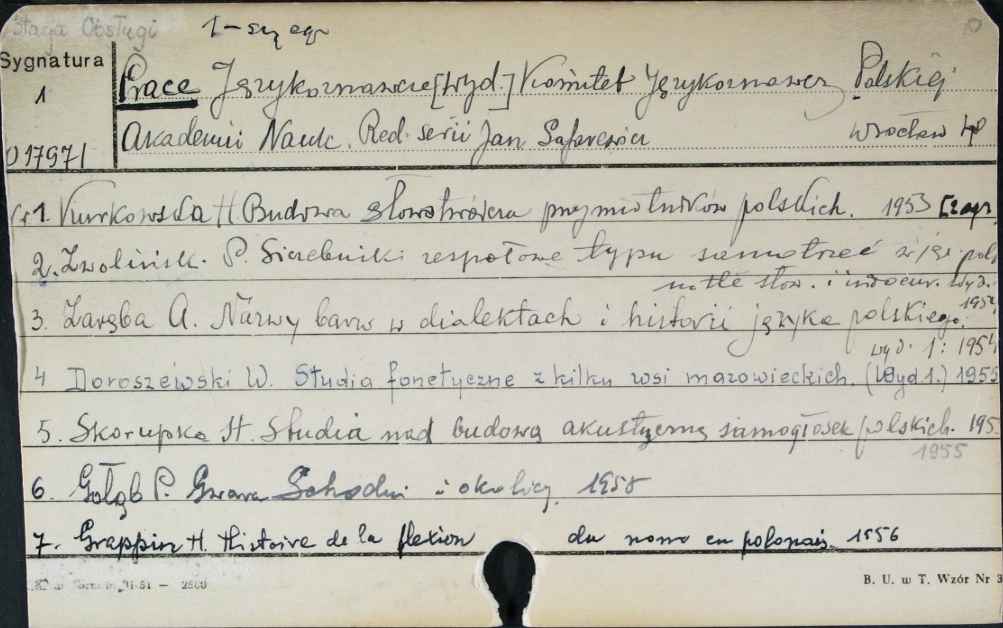 1 – szy egz
Sygnatura
1
017971
Prace Językoznawcze [Wyd.] Komitet Językoznawczy Polskiej
Akademii Nauk. Red. serii Jan Safarewicz Wrocław
1. Kurkowska H. Budowa słowotwórcza przymiotników polskich. 1953
2. Zwolińsk. P. Liczebniki zespołowe typu samotrzeć w jęz. pol.
na tle słow. i indoeur. Wyd.
1954
3. Zaręba A. Nazwy barw w dialektach i historii języka polskiego.
wyd. 1: 1954
4 Doroszewski W. Studia fonetyczne z kilku wsi mazowieckich. (Wyd 1.) 1955
5. Skorupka St. Studia nad budową akustyczną samogłosek polskich. 195
1955
6. Gołąb P. Gwara Schodni i okolicy. 1955
7. Grappin H. Histoire de la flexion du nom en polonais. 1956
B. U. w T. Wzór Nr 3